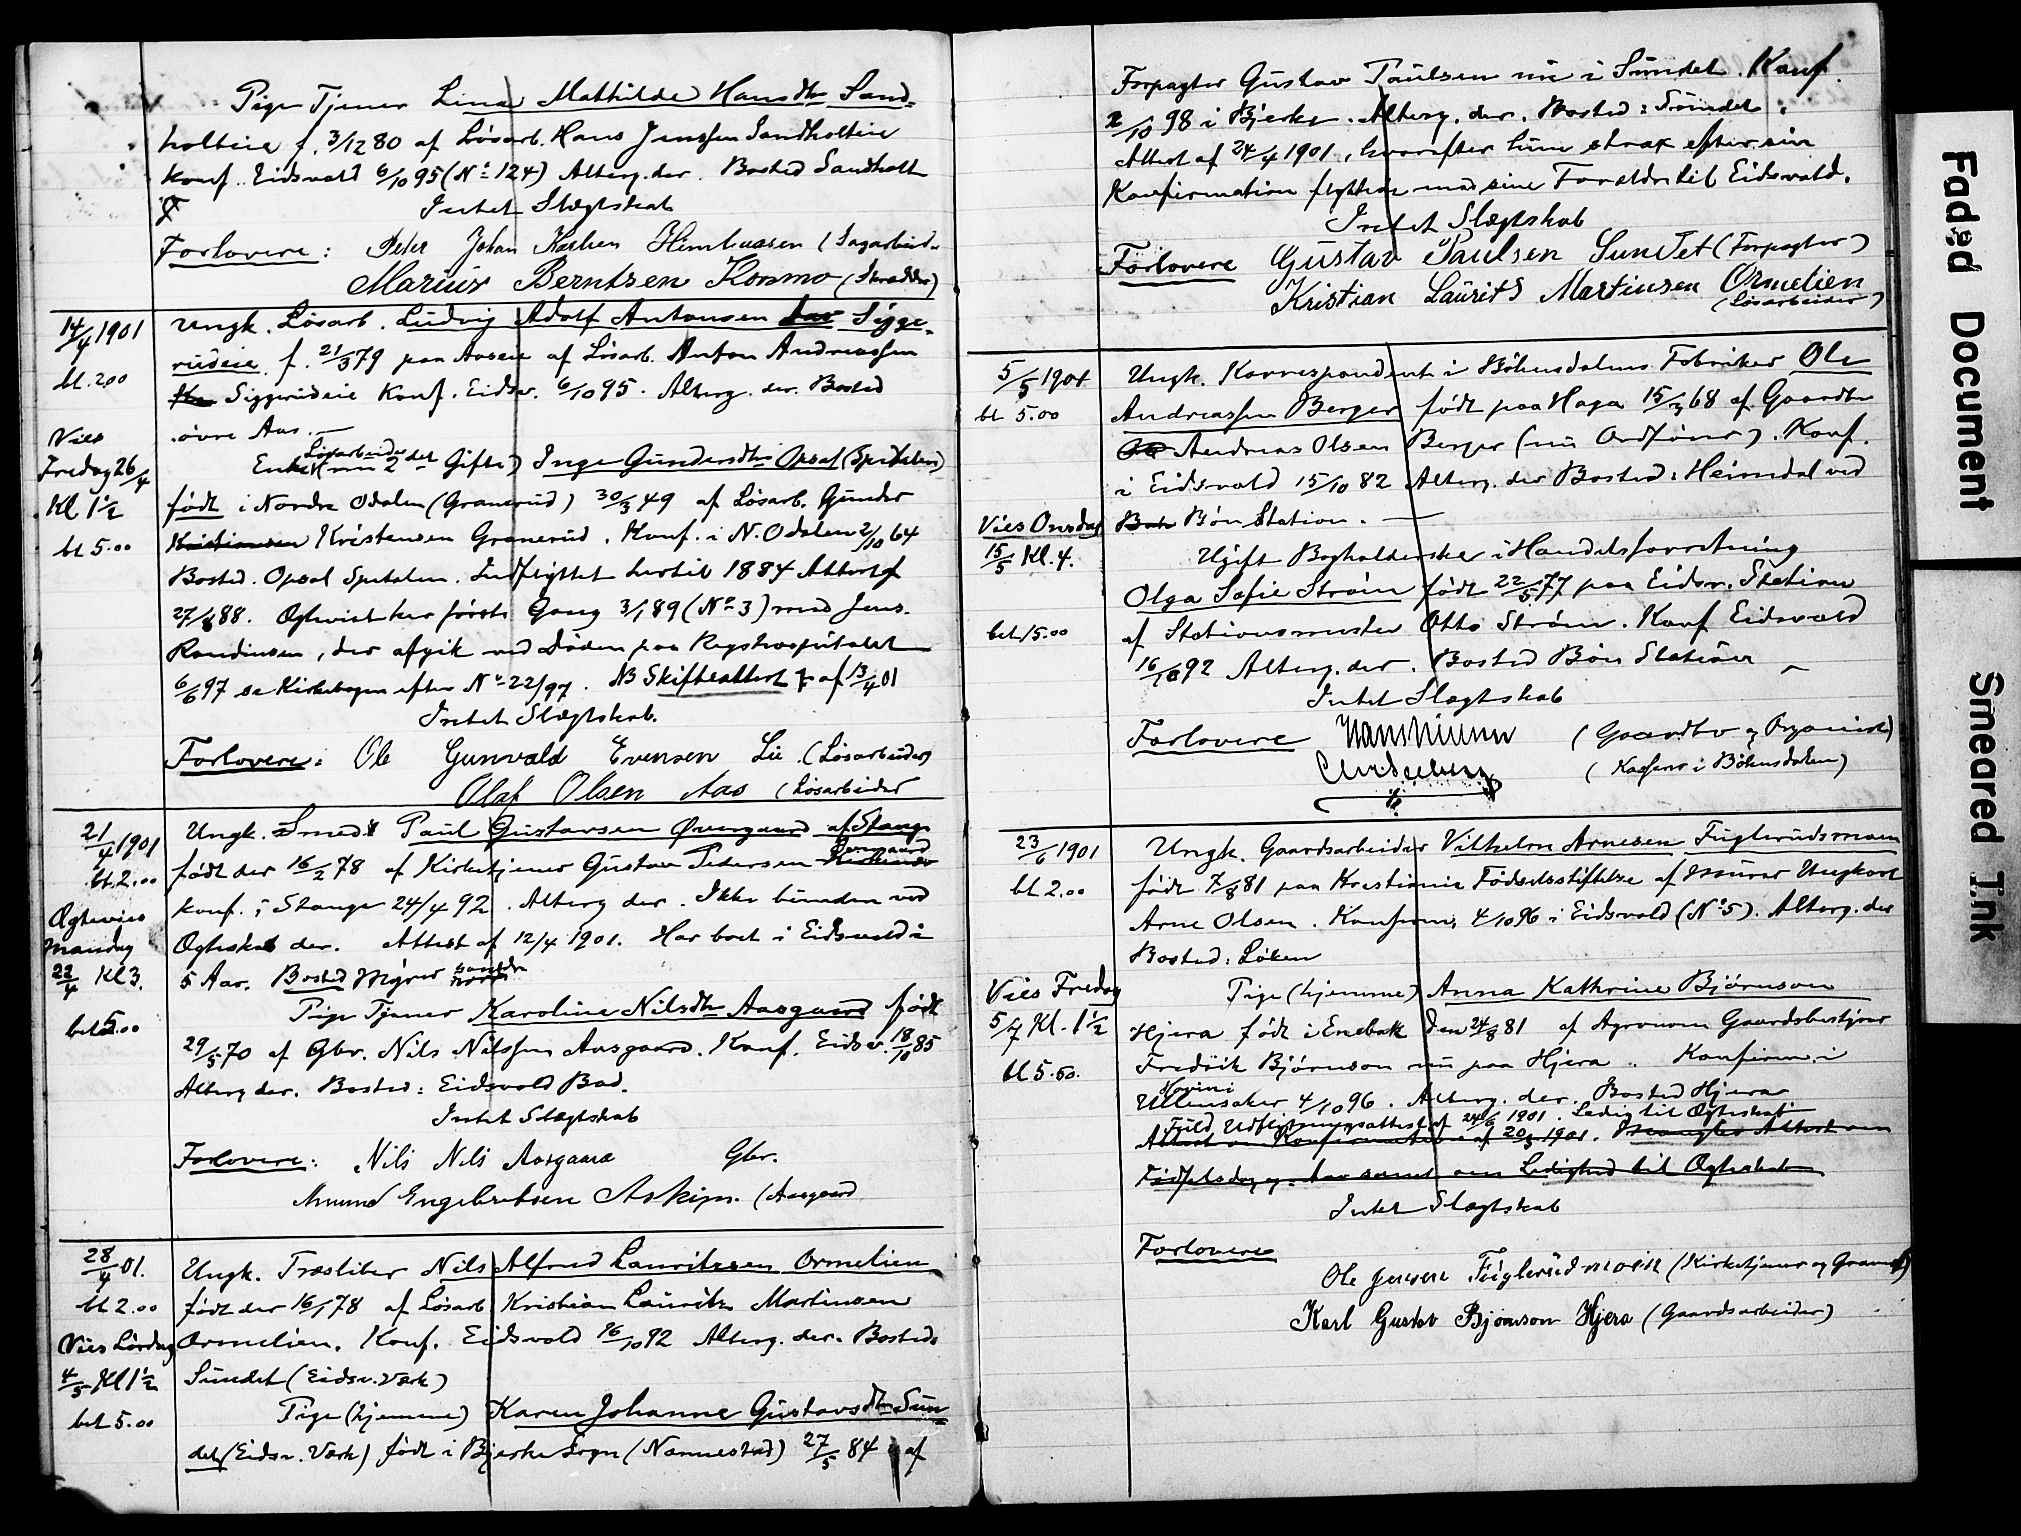 Pige Tjener Lina Mathilde Hansdtr Sand=
holteie f. 3/12 80 af Løsarb. Hans Jenssen Sandholteie
Konf. Eidsvold 6/10 95 (No 124) Alterg. der. Bosted Sandholt
Intet Slægtskab
Forlovere: Peter Johan Karlsen (Sagarbeider
Marius Berntsen Kommo (Skrædder)
14/4 1901
bl. 2.00
Vies
Fredag 26/4
Kl 1 1/2
bl 5.00
Ungk. Løsarb. Ludvig Adolf Antonsen Sigge-
rudeie f. 21/3 79 paa Aaseie af Løsarb. Anton Andreassen
Siggerudeie Konf. Eidsv. 6/10 95. Alterg. der. Bosted
øvre Aas. —
Enke Løsarbeider (nu 2det Gifte) Inge Gundersdtr Opsal (Spitalen)
født i Nordre Odalen (Granerud) 30/3 49 af Løsarb. Gunder
Kristiansen Kristensen Granerud. Konf. i N. Odalen 2/10 64
Bosted. Opsal Spitalen. Indflyttet hertil 1884 Attest af
27/4 88. Ægteviet her første Gang 3/1 89 (No 3) med Jens
Randinsen, der afgik ved Døden paa Rigshospitalet
6/6 97 se Kirkebogen efter No 22/97. NB Skifteattest af 13/4 01
Intet Slægtskab.
Forlovere: Ole Gunvald Evensen Lie (Løsarbeider)
Olaf Olsen Aas (Løsarbeider
21/4 1901
bl. 2.00
Ægtevies
Mandag
22/4 Kl 3.
bet 5.00
Ungk. Smed Paul Gustavsen Øvergaard af Stange
født der 16/2 78 af Kirketjener Gustav Pedersen
Konf. i Stange 24/4 92. Alterg der. Ikke bunden ved
Ægteskab der. Attest af 12/4 1901. Har boet i Eidsvold i
5 Aar. Bosted Myrer søndre
Pige Tjener Karoline Nilsdtr Aasgaard født
29/5 70 af Gbr. Nils Nilssen Aasgaard. Konf. Eidsv. 18/10 85
Alterg der. Bosted: Eidsvold Bad.
Intet Slægtskab
Forlovere: Nils Nils Aasgaard Gbr.
Amund Engebretsen Askim. (Aasgaard
28/4 01.
bl 2.00
Vies Lørdag
4/5 Kl 1 1/2
bet 5.00
Ungk. Træsliber Nils Alfred Lauritzen Ormelien
født der 16/1 78 af Løsarb Kristian Lauritz Martinsen
Ormelien. Konf. Eidsvold 16/10 92 Alterg. der. Bosted:
Sundet (Eidsv. Værk)
Pige (hjemme) Karen Johanne Gustavsdtr Sun=
det (Eidsv. Værk) født i Bjerke Sogn (Nannestad) 27/5 84 af
Forpagter Gustav Paulsen nu i Sundet. Konf.
2/10 98 i Bjerke. Alterg. der. Bosted: Sundet.
Attest af 24/4 1901, hvorefter hun strax efter sin
Konfirmation flyttede med sine Forældre til Eidsvold.
Intet Slægtskab
Forlovere Gustav Paulsen Sundet (Forpagter)
Kristian Laurits Martinsen Ormelien
(Løsarbeider)
5/5 1901
bl 5.00
Vies Onsdag
15/5 Kl. 4.
bet 15.00
Ungk. Korrespondent i Bøhnsdalens Fabriker Ole
Andreassen Berger født paa Haga 15/3 68 af Gaardbr
Andreas Olsen Berger (nu Ordfører). Konf.
i Eidsvold 15/10 82 Alterg. der Bosted: Heimdal ved
Bøn Station. —
Ugift Bogholderske i Handelsforretning
Olga Sofie Strøm født 22/5 77 paa Eidsv. Station
af Stationsmester Otto Strøm. Konf Eidsvold
16/10 92 Alterg. der. Bosted Bøn Station
Intet Slægtskab
Forlovere (Gaardbr og Organist)
(Kasserer i Bøhnsdalen)
23/6 1901
bl 2.00
Vies Fredag
5/7 Kl. 1 1/2
bl 5.50.
Ungk. Gaardsarbeider Vilhelm Arnesen Fuglerudsmoen
født 7/8 81 paa Kristiania Fødselsstiftelse af Murer Ungkarl
Arne Olsen. Konfirm. 4/10 96 i Eidsvold (No 5). Alterg. der
Bosted: Løken
Pige (hjemme) Anna Kathrine Bjørnson
Hjera født i Enebak den 24/8 81 af Agronom Gaardsbestyrer
Fredrik Bjørnson nu paa Hjera. Konfirm. i
Hovin i Ullensaker 4/10 96. Alterg. der. Bosted Hjera
Fuld Udflytningsattest af 24/6 1901. Ledig til Ægteskab
Attest om Konfirmation af 20/3 1901. Mangler Attest om
Fødselsdag og Aar samt om Ledighed til Ægteskab
Intet Slægtskab
Forlovere
Ole Jensen Fuglerudmoen (Kirketjener og Graver)
Karl Gustav Bjørnson Hjera (Gaardsarbeider)
Faded Document
Smeared Ink